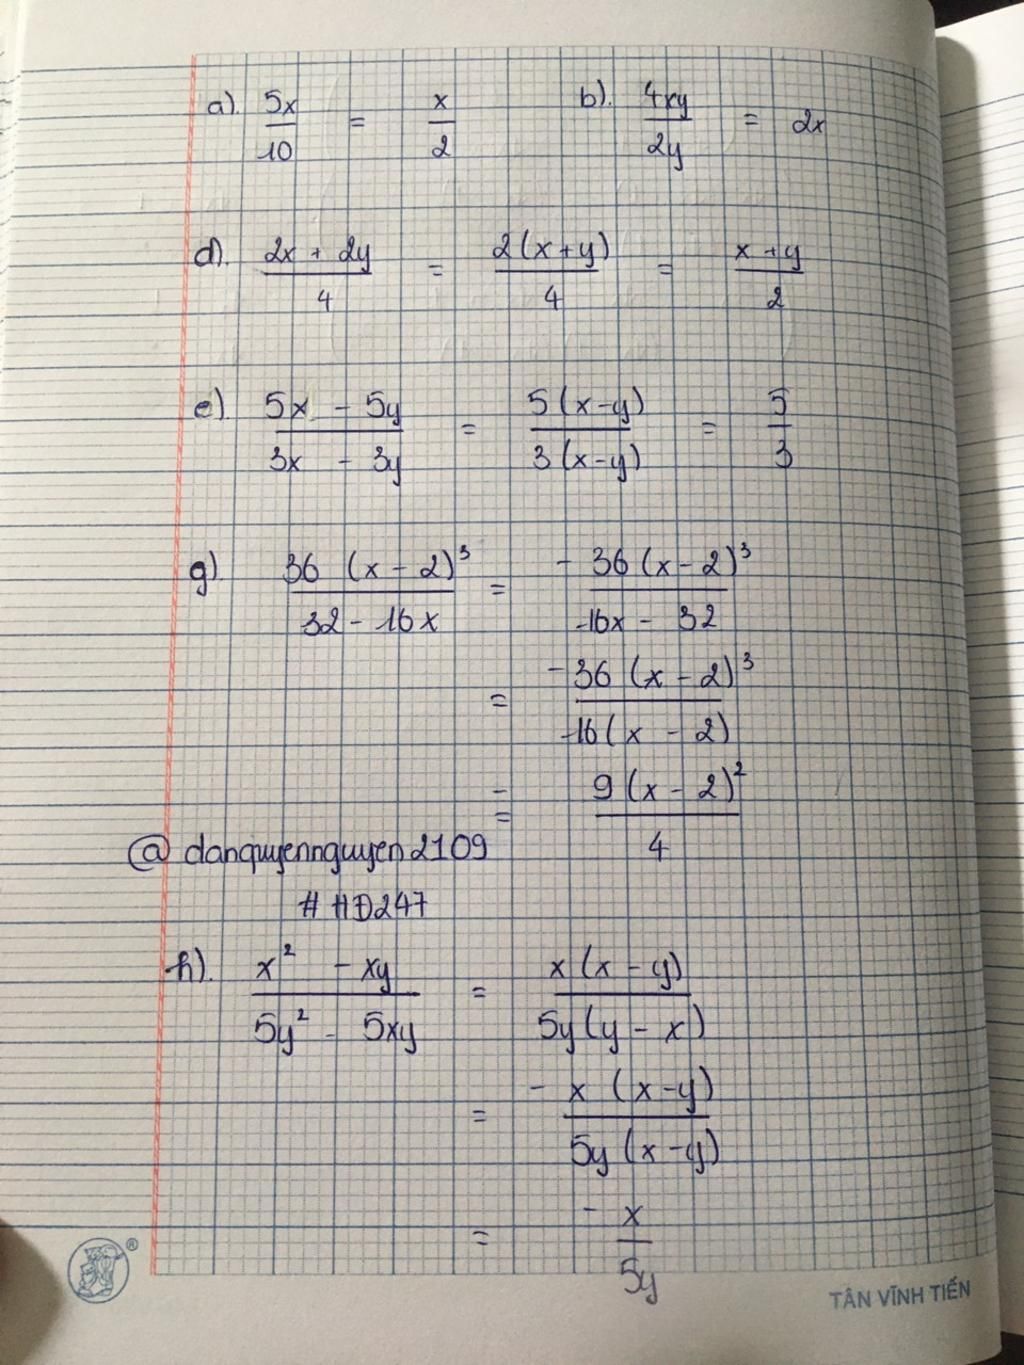 a). 5x/10 = x/2 b). 4xy/2y = 2x
d). 2x + 2y/4 = 2(x+y)/4 = x+y/2
e). 5x - 5y/3x - 3y = 5(x-y)/3(x-y) = 5/3
g). 36 (x-2)³/32 - 16x = - 36(x-2)³/16x - 32
= - 36(x-2)³/16(x - 2)
= - 9(x-2)²/4
@ danquyennguyen2109
# HD247
h). x² - xy/5y² - 5xy = x(x-y)/5y(y-x)
= - x (x-y)/5y(x-y)
= - x/5y
®
TÂN VĨNH TIẾN